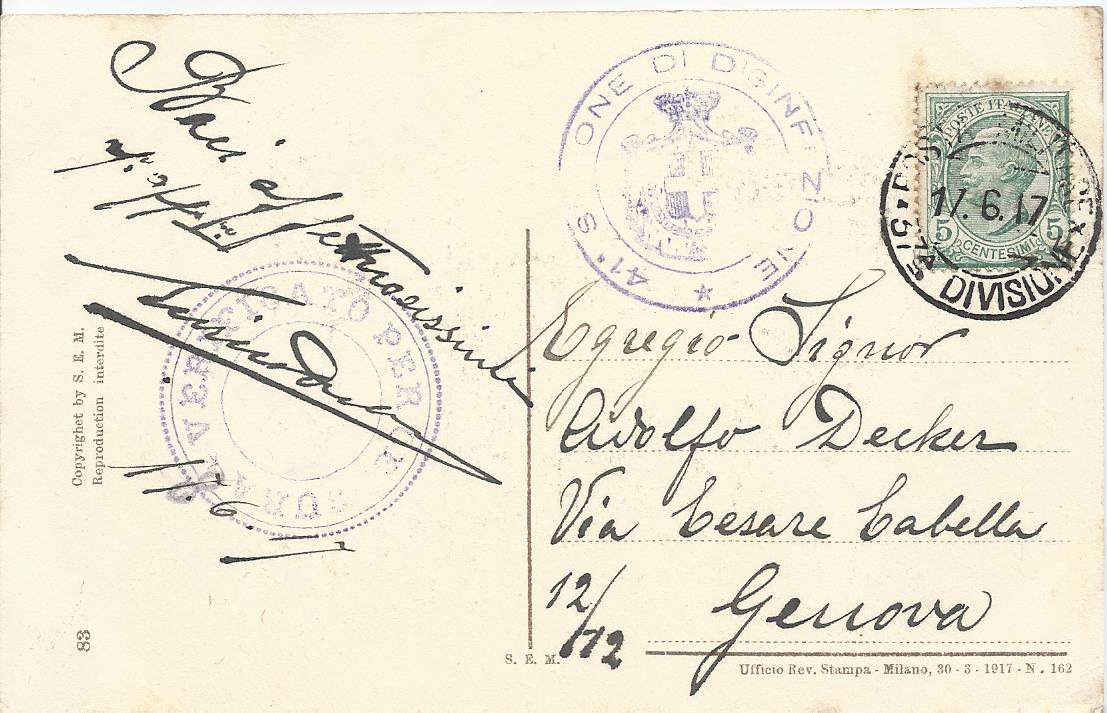 Baci affettuosissimi
17.6.17
VERIFICATO PER CENSURA
Copyrighet by S. E. M.
Reproduction interdite
83
41ª S ONE DI DISINFEZIONE
POSTE ITALIANE
5 CENTESIMI 5
17.6.17
51ª DIVISIONE
Egregio Signor
Adolfo Decker
Via Cesare Cabella
12/12
Genova
S. E. M.
Ufficio Rev. Stampa - Milano, 30 - 3 - 1917 - N. 162